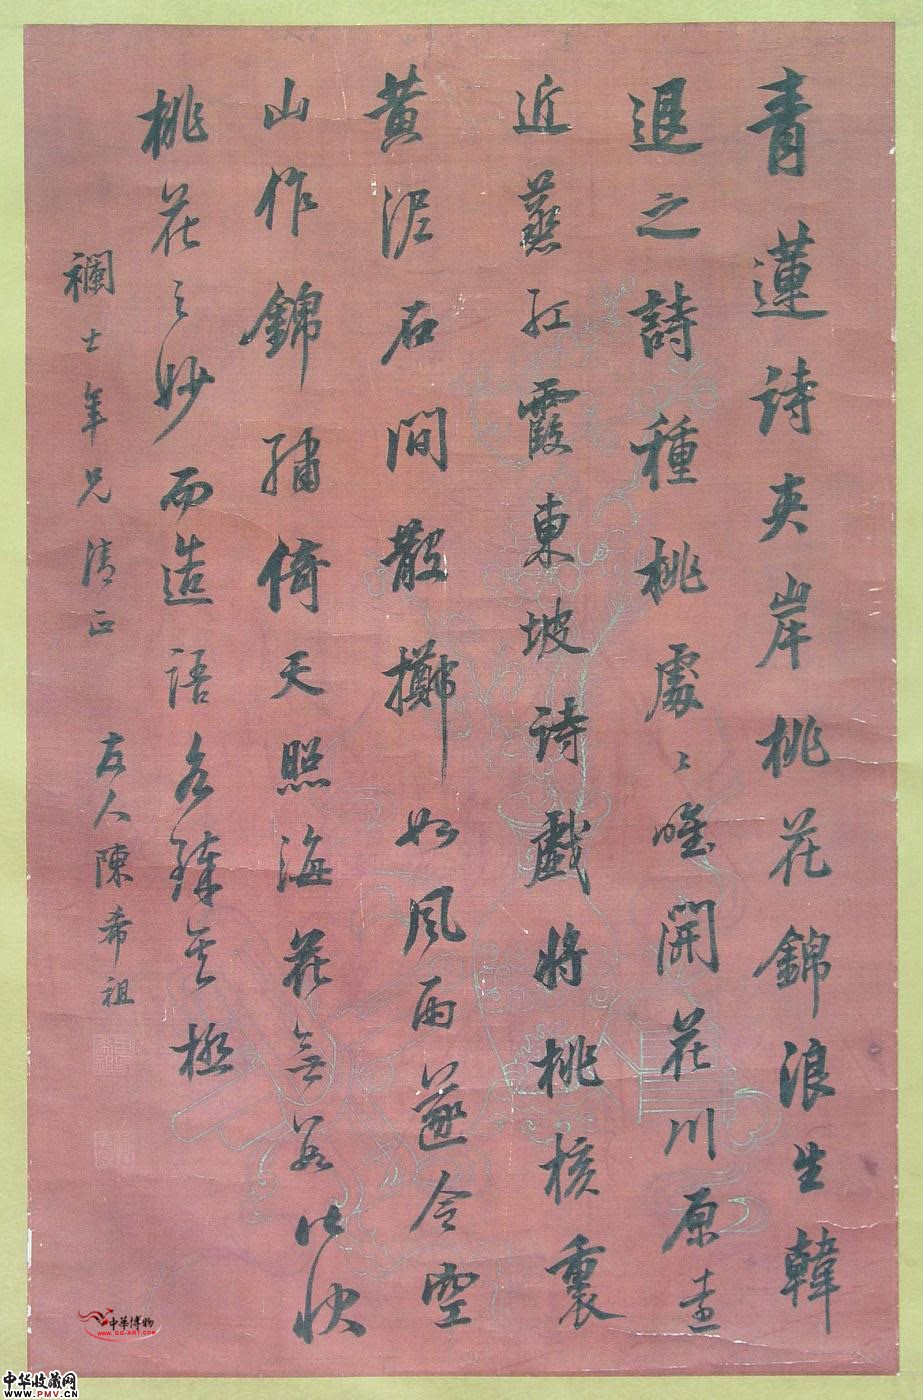 青蓮诗夹岸桃花錦浪生韓
退之詩種桃處〻唯開花川原遠
近蒸紅霞東坡诗戲將桃核裹
黃泥石間散擲如風雨遂令空
山作錦繡倚天照海花無數比狀
桃花之妙而造語各臻其極
襴士年兄清正
友人陳希祖
中華博物
www.gg-art.com
中华收藏网
www.PMV.CN